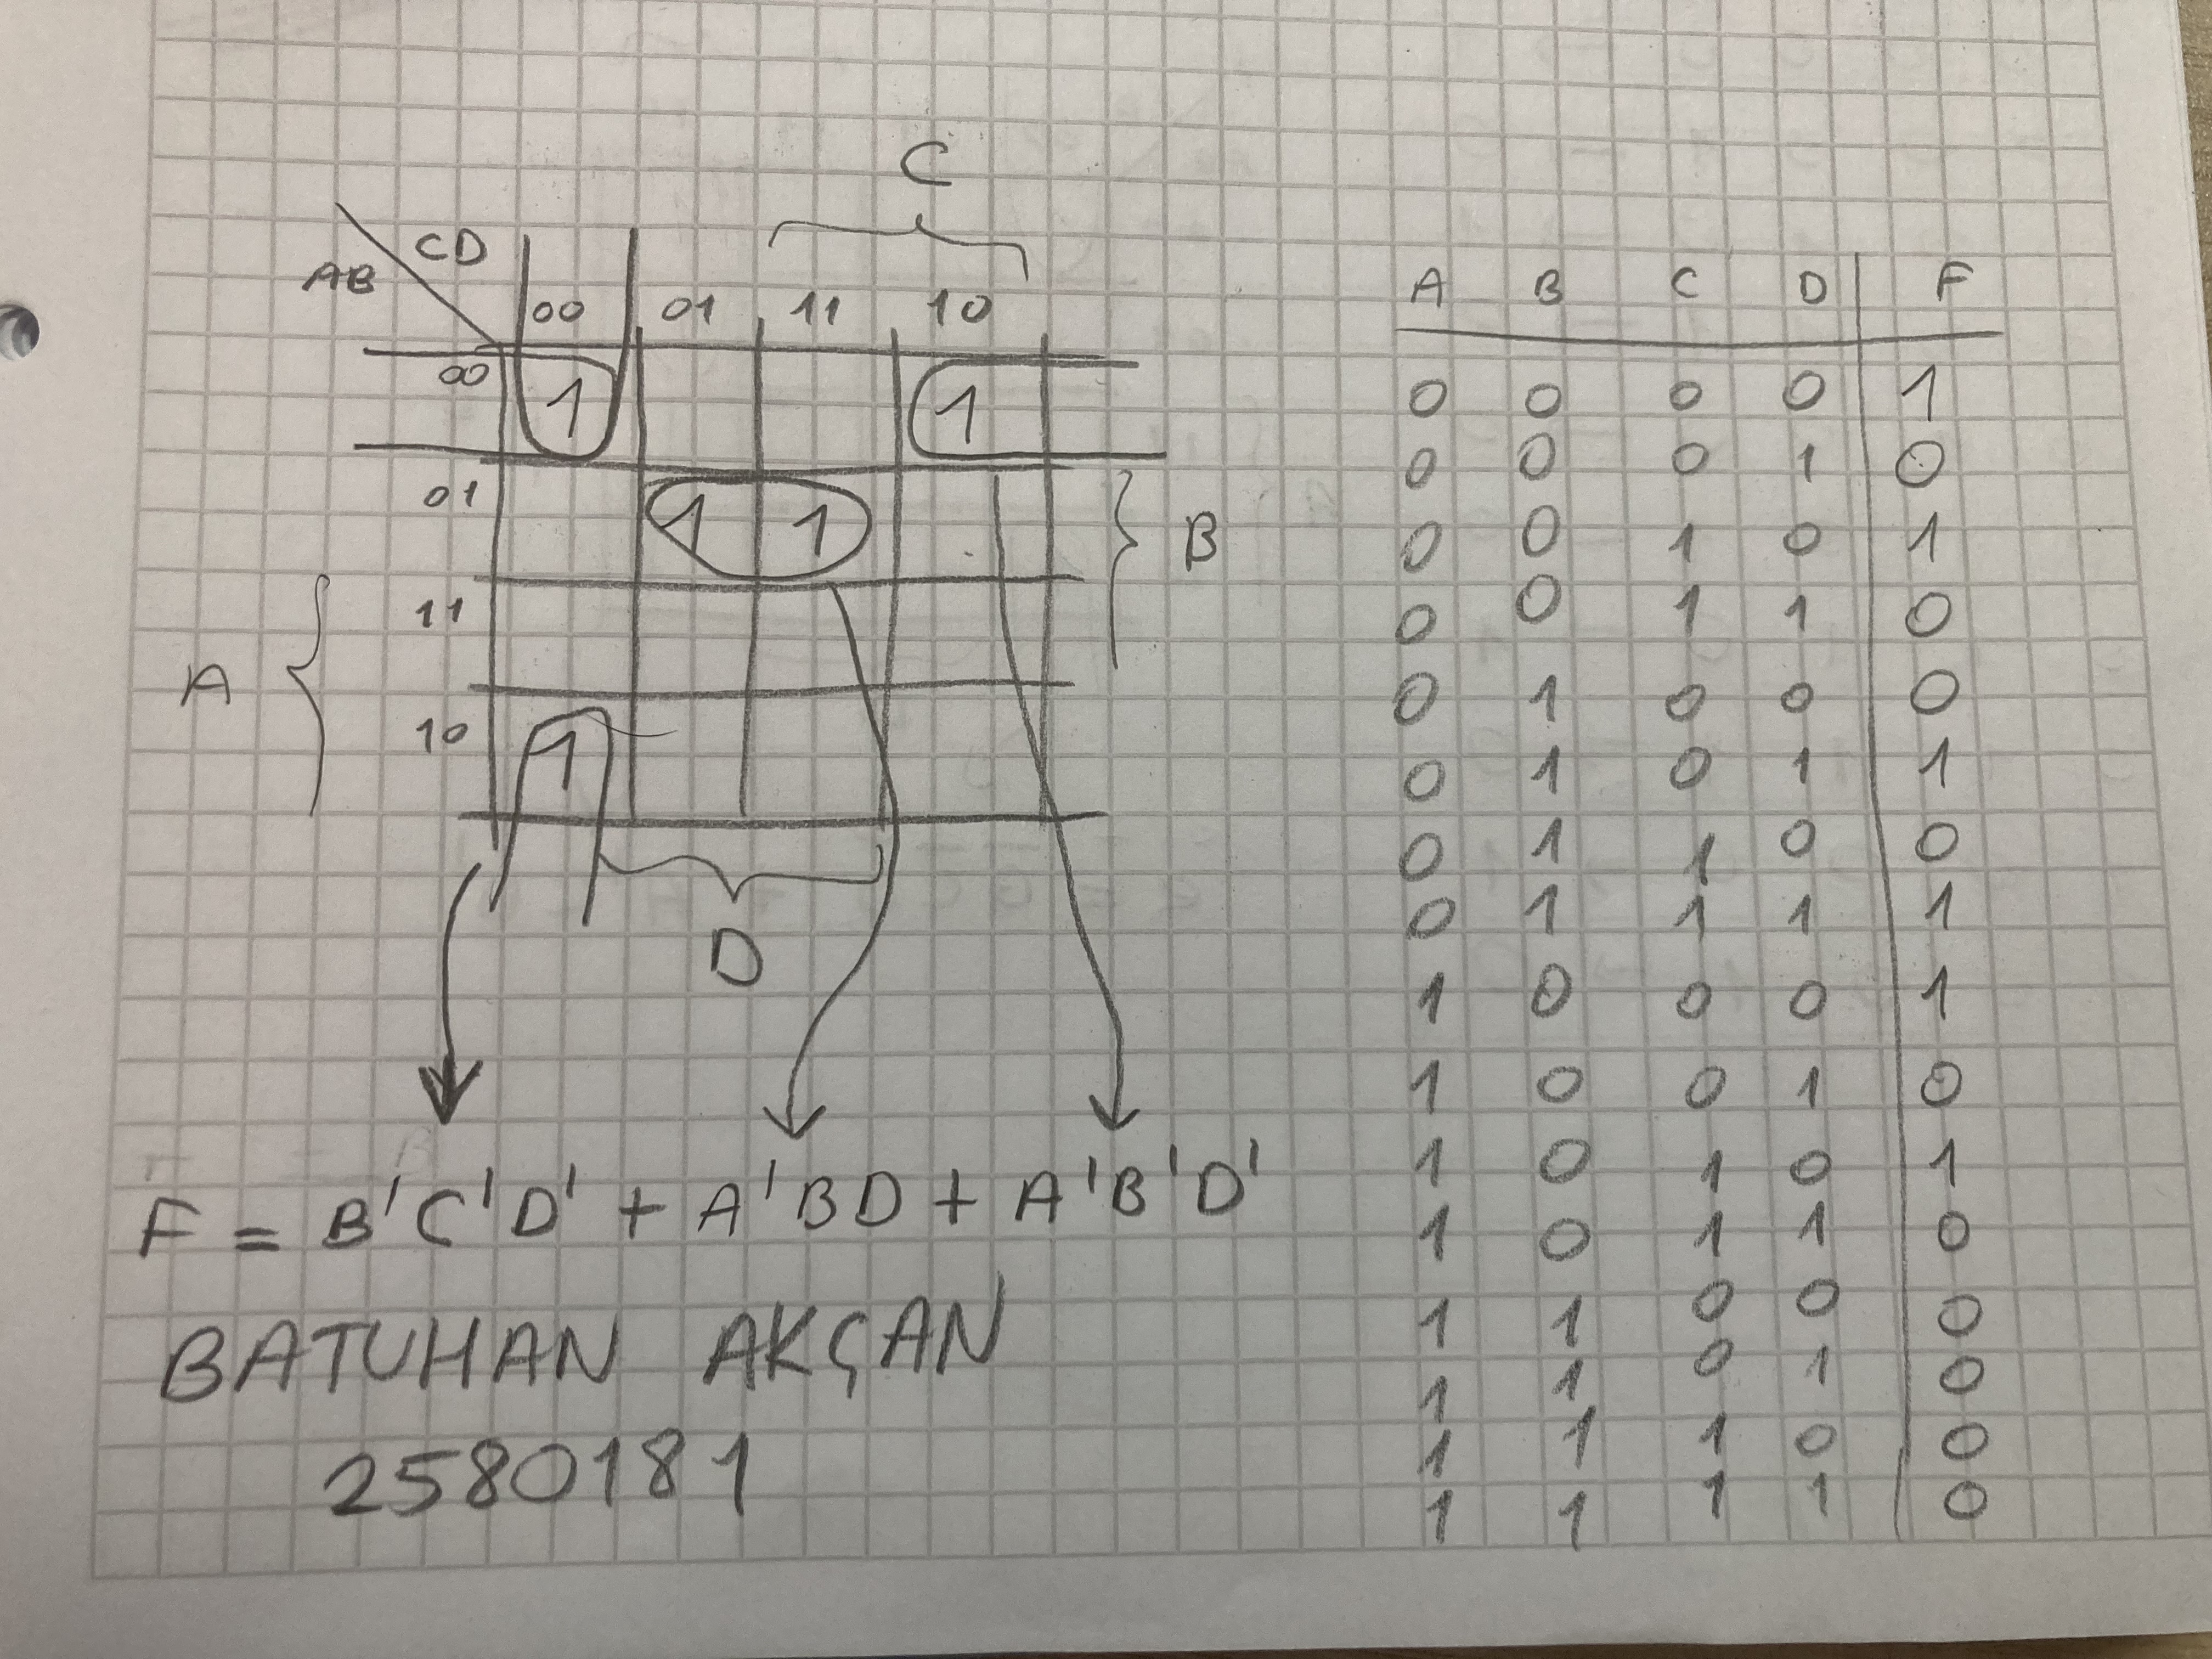 C
CD
AB
00 01 11 10
00 1 1
01 1 1
B
11
A
10 1
D
F = B'C'D' + A'BD + A'B'D'
BATUHAN AKÇAN
2580181
A B C D F
0 0 0 0 1
0 0 0 1 0
0 0 1 0 1
0 0 1 1 0
0 1 0 0 0
0 1 0 1 1
0 1 1 0 0
0 1 1 1 1
1 0 0 0 1
1 0 0 1 0
1 0 1 0 1
1 0 1 1 0
1 1 0 0 0
1 1 0 1 0
1 1 1 0 0
1 1 1 1 0